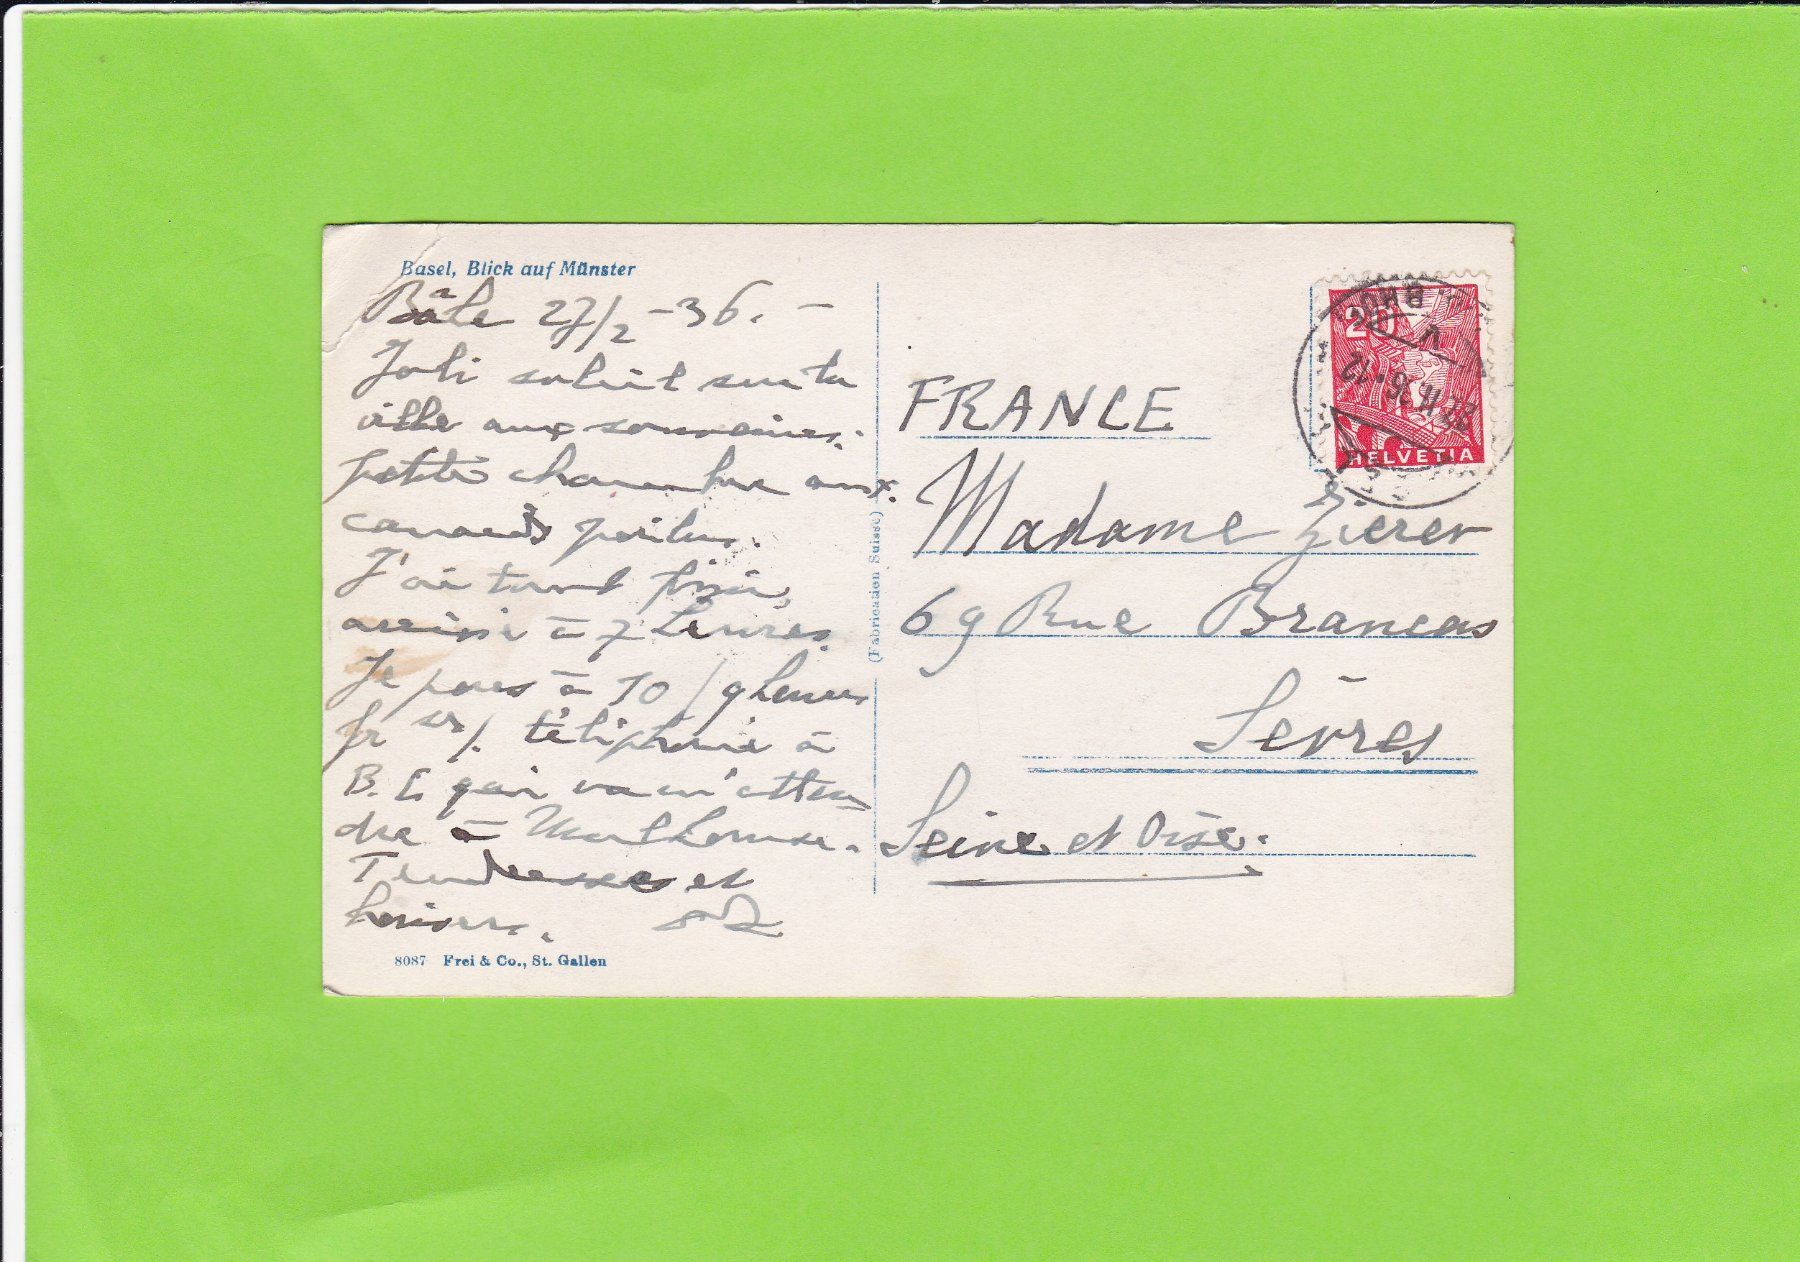 Basel, Blick auf Münster
Bâle 27/2 - 36. -
Joli soleil sur la
ville aux
petite chambre aux
canards
J'ai tout fini,
arrivé à 7 heures.
Je pars à 10/9 heures
fr /. téléphoné à
B. L qui va m'atten
dre à Mulhouse.
Tendresses et
baisers.
8087 Frei & Co., St. Gallen
(Fabrication Suisse)
20
HELVETIA
FRANCE
Madame Zierer
69 Rue Brancas
Sèvres
Seine et Oise.